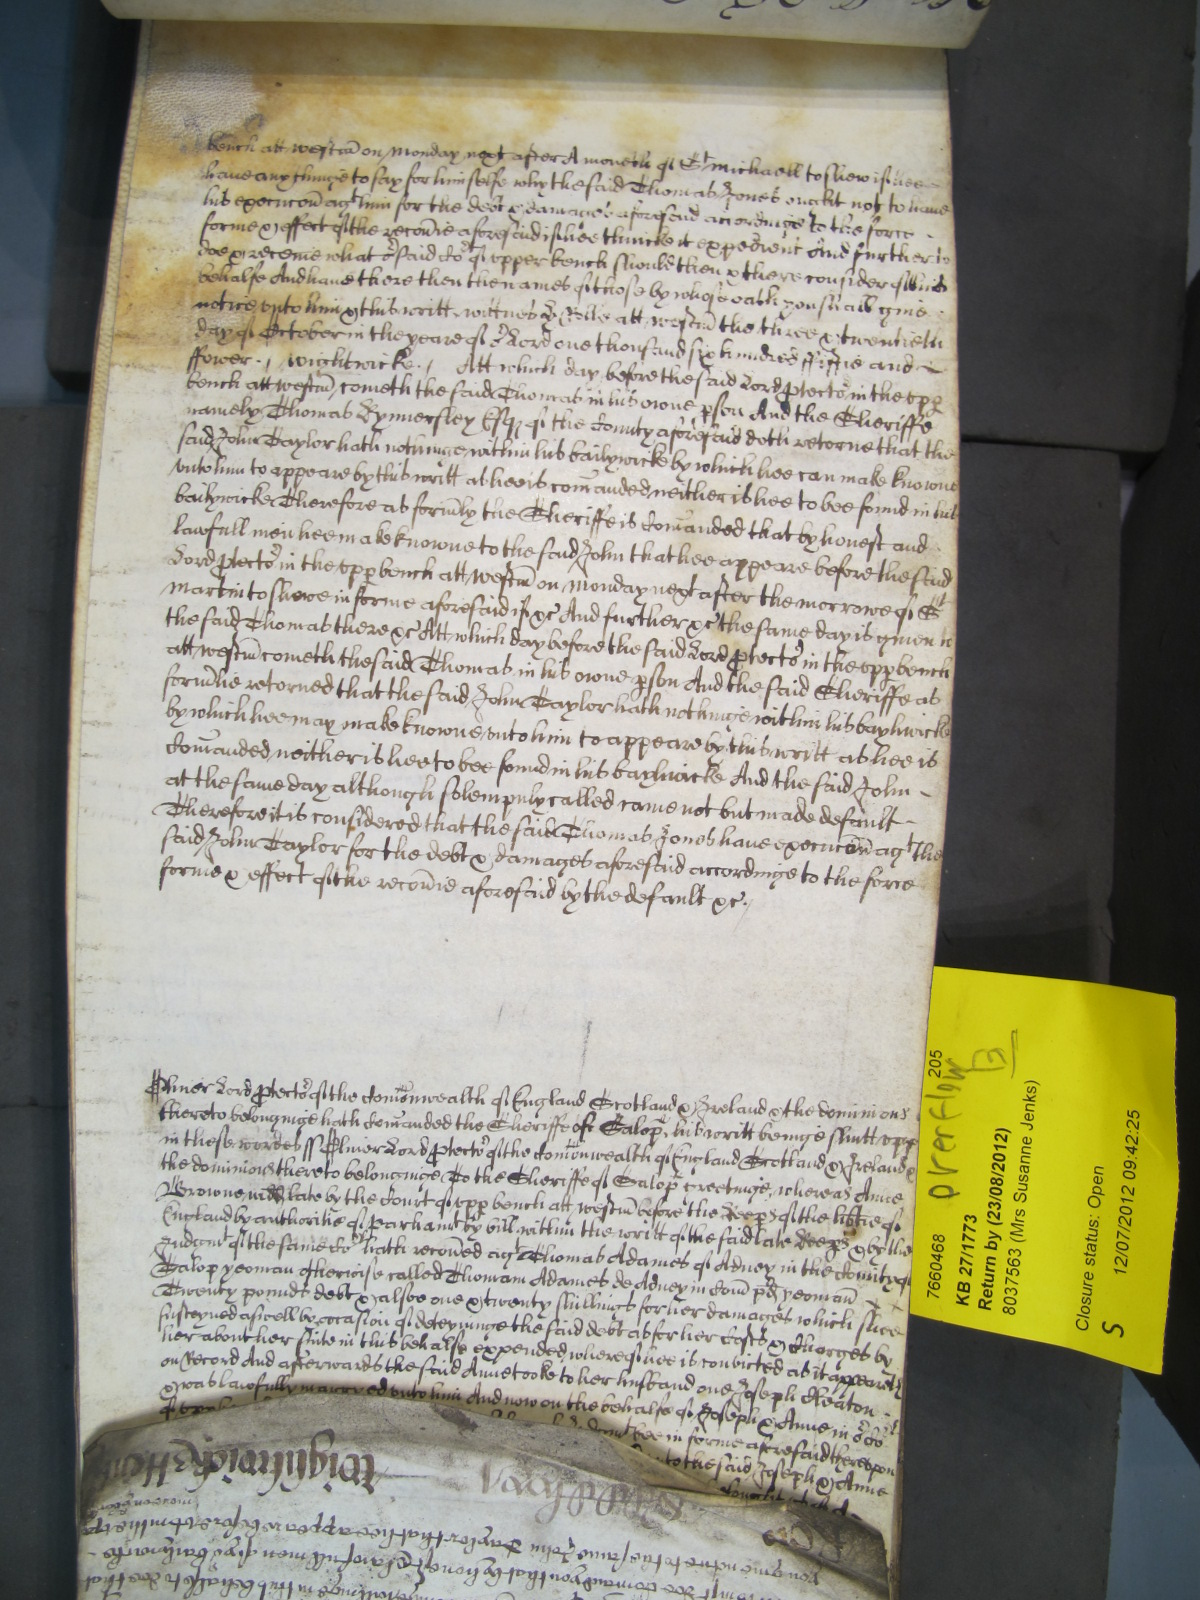 bench att westm̃ on Monday next after A moneth of St Michaell to shew if hee
have any thinge to say for himselfe why the said Thomas Jones ought not to have
his execucoñ agt him for the debt & damages aforesaid accordinge to the force
forme & effect of the recov̄ie aforesaid if hee thincke it expedient And further to
doe & receive what or said Cort of upper bench should then & there consider of
behalfe And have there then the names of those by whose oath you shall give
notice unto him & this writt wittnes H Rolle att westm̃ the three & twentieth
day of October in the yeare of or Lord one thousand six hundred fiftie and
ffower. Wightwicke. Att which day before the said Lord ꝑtector in the upꝑ
bench att westm̃ cometh the said Thomas in his owne ꝑson And the Sheriffe
namely Thomas Kynnersley Esqr of the County aforesaid doth retorne that the
said John Taylor hath nothinge within his bailywicke by which hee can make knowne
unto him to appeare by this writt as hee is com̄anded neither is hee to bee found in his
bailywicke Therefore as form̃ly the Sheriffe is Com̄anded that by honest and
lawfull men hee make knowne to the said John that hee appeare before the said
Lord ꝑtector in the upꝑ bench att westm̃ on Monday next after the morrowe of St
Martin to shewe in forme aforesaid if &c And further &c the same day is given to
the said Thomas there &c Att which day before the said Lord ꝑtector in the upꝑ bench
att westm̃ cometh the said Thomas in his owne ꝑson And the said Sheriffe as
form̃lie retorned that the said John Taylor hath nothinge within his baylywicke
by which hee may make knowne unto him to appeare by this writt as hee is
Com̄anded neither is hee to bee found in his baylywicke And the said John
at the same day although solempnly called came not but made default
Therefore it is considered that the said Thomas Jones have execucoñ agt the
said John Taylor for the debt & damages aforesaid accordinge to the force
forme & effect of the recov̄ie aforesaid by the default &c.
Oliver Lord ꝑtector of the Com̄onwealth of England Scotland & Ireland & the dominions
thereto belonginge hath Com̄anded the Sheriffe of Salop his writt beinge shutt upp
in these wordes ss Oliver Lord ꝑtector of the Com̄onwealth of England Scotland & Ireland &
the dominions thereto belonginge To the Sheriffe of Salop greetinge whereas Anne
Browne late by the Court of upꝑ bench att westm̃ before the Keeꝑs of the lib̃tie of
England by authoritie of parliamt by bill within the writt of the said late Keeꝑs & by the
Judgmt of the same Cort hath recov̄ed agt Thomas Adames of Adney in the County of
Salop yeoman otherwise called Thomam Adames de Adney in Com̃ ꝑd yeoman
Twenty pounds debt & alsoe one & twenty shillings for her damages which shee
susteyned aswell by occasion of deteyninge the said debt as for her Costs & Charges by
her about her suite in this behalfe expended whereof hee is convicted as it appeareth
on Record And afterwards the said Anne tooke to her husband one Joseph Heaton
& was lawfully marryed unto him And now on the behalfe of Joseph & Anne in or Cort
bee in forme aforesaid thereupon
to the said Joseph & Anne
Wightwick
7660468 205
overflow
KB 27/1773
13
Return by (23/08/2012)
8037563 (Mrs Susanne Jenks)
Closure status: Open
S 12/07/2012 09:42:25